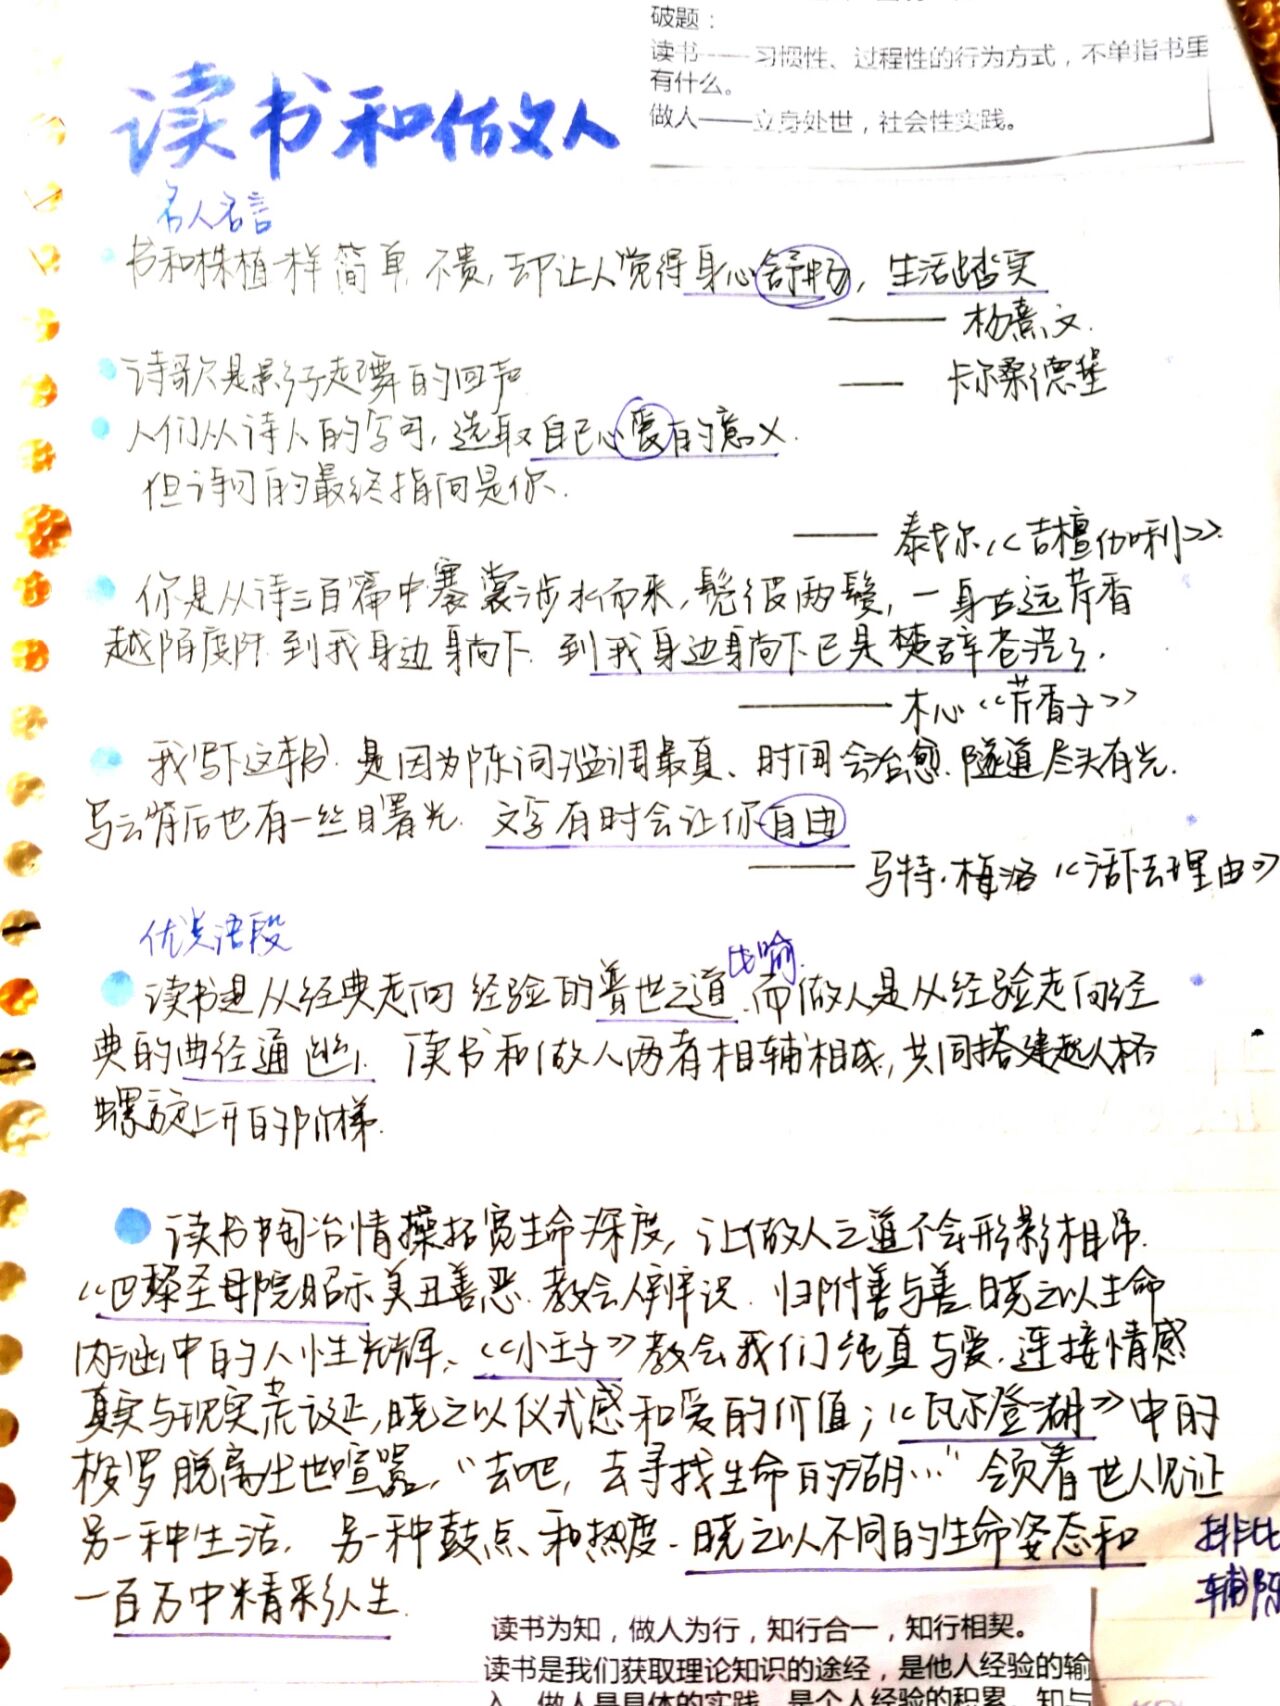 破题：
读书——习惯性、过程性的行为方式，不单指书里
有什么。
做人——立身处世，社会性实践。
读书和做人
名人名言
书和株植一样简单，不贵，却让人觉得身心舒畅，生活踏实
——杨熹文
诗歌是影子起舞的回声
——卡尔桑德堡
人们从诗人的字句，选取自己心爱的意义．
但诗句的最终指向是你．
——泰戈尔《吉檀伽利》
你是从诗三百篇中褰裳涉水而来，髧彼两髦，一身古远芹香
越陌度阡 到我身边躺下 到我身边躺下已是楚辞苍茫了．
——木心《芹香子》
我写下这本书．是因为陈词滥调最真、时间会治愈．隧道尽头有光．
乌云背后也有一丝曙光．文字有时会让你自由
——马特．梅洛《活下去理由》
优美语段
比喻
读书是从经典走向经验的普世之道．而做人是从经验走向经
典的曲径通幽．读书和做人两者相辅相成，共同搭建起人格
螺旋上升的阶梯．
读书陶冶情操拓宽生命深度，让做人之道不会形影相吊．
《巴黎圣母院》昭示美丑善恶．教会人辩识．归附善与善．晓之以生命
内涵中的人性光辉、《小王子》教会我们纯真与爱．连接情感
真实与现实荒诞，晓之以仪式感和爱的价值；《瓦尔登湖》中的
梭罗脱离出世喧嚣，“去吧，去寻找生命的湖…”领着世人见证
另一种生活．另一种鼓点和热度．晓之以不同的生命姿态和
一百万中精彩人生．
排比
辅陈
读书为知，做人为行，知行合一，知行相契。
读书是我们获取理论知识的途经，是他人经验的输
入，做人是具体的实践，是个人经验的积累。知与